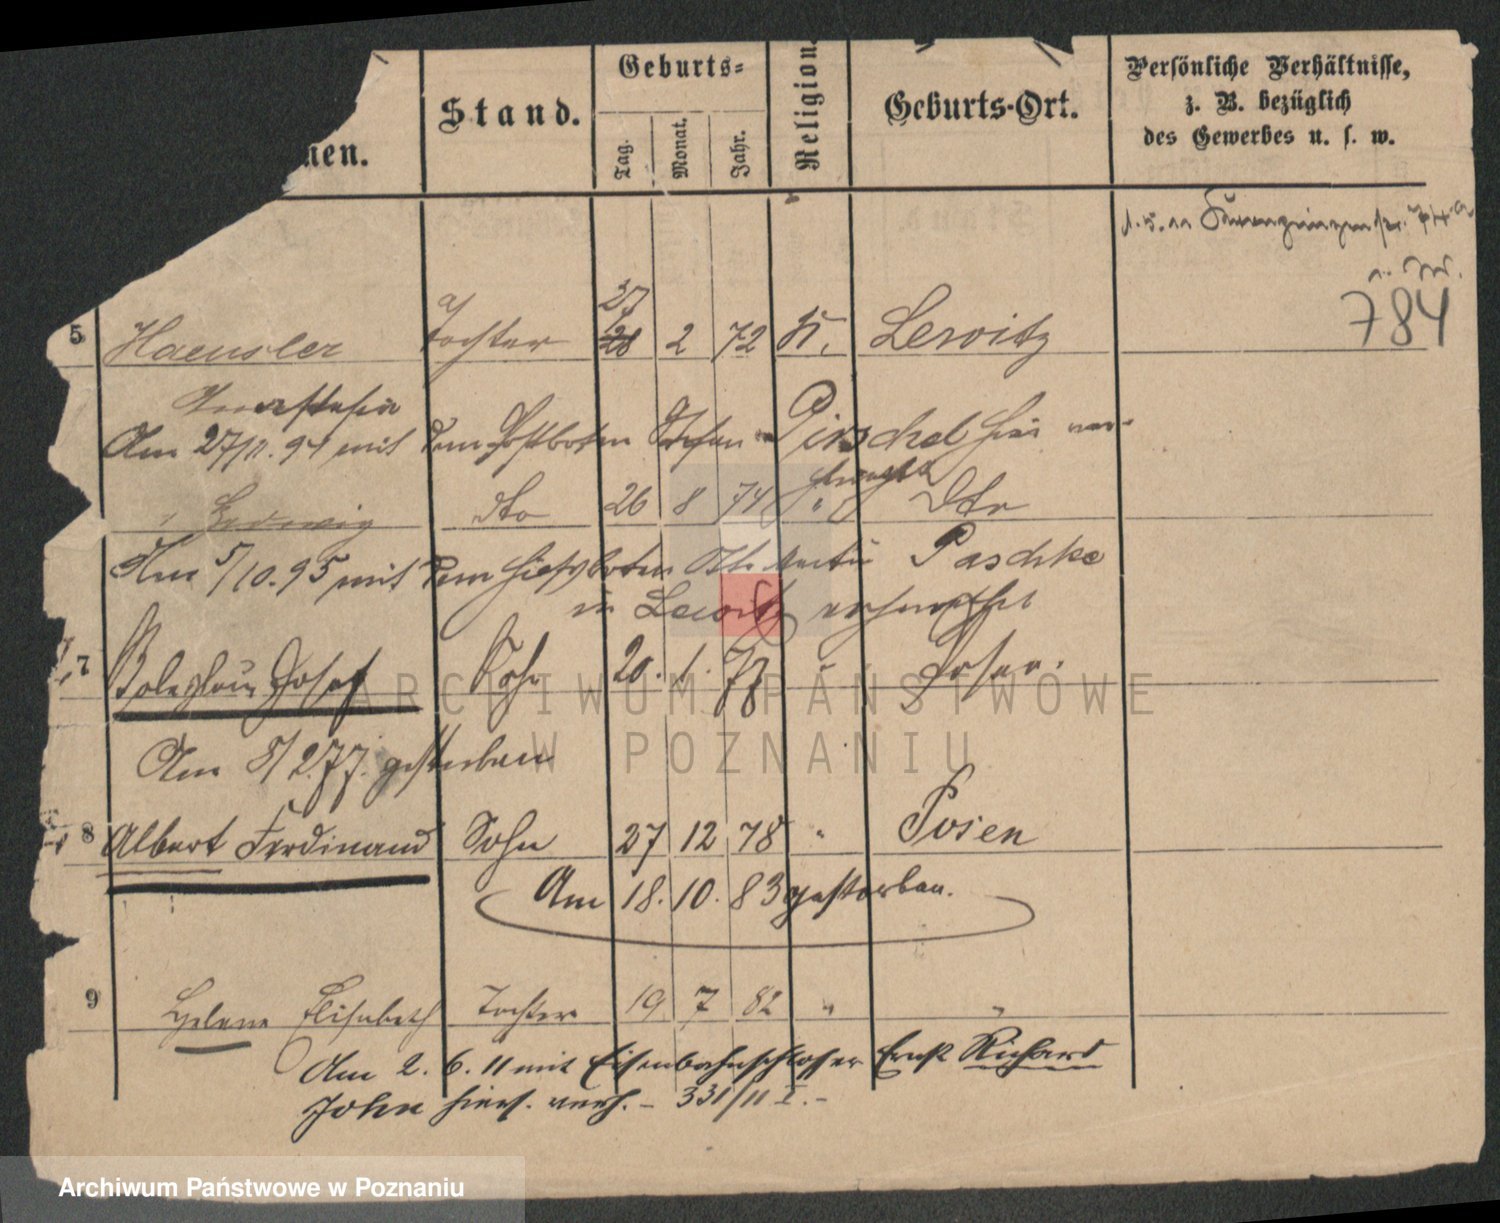 Stand.
Geburts=
Tag.
Monat.
Jahr.
Religion.
Geburts-Ort.
Persönliche Verhältnisse,
z. B. bezüglich
des Gewerbes u. s. w.
nen.
784
5 Haeusler Tochter 27 28 2 72 K. Lewitz
Anastasia
Am 27/11. 94 mit dem Postboten Stefan Pirschel hier ver-
Hedwig dto 26 8 74 " Dto
Am 5/10. 95 mit dem Paschke
in Lewitz verheirathet
7 Boleslaus Josef Sohn 20. 1. 77 " Posen.
Am 8/2 77. gestorben
8 Albert Ferdinand Sohn 27 12 78 " Posen
Am 18. 10. 83 gestorben.
9 Helene Elisabeth Tochter 19 7 82 " "
Am 2. 6. 11 mit Eisenbahnschlosser Ernst Richard
John hiers. verh. – 331/11 I. –
ARCHIWUM PAŃSTWOWE
W POZNANIU
Archiwum Państwowe w Poznaniu